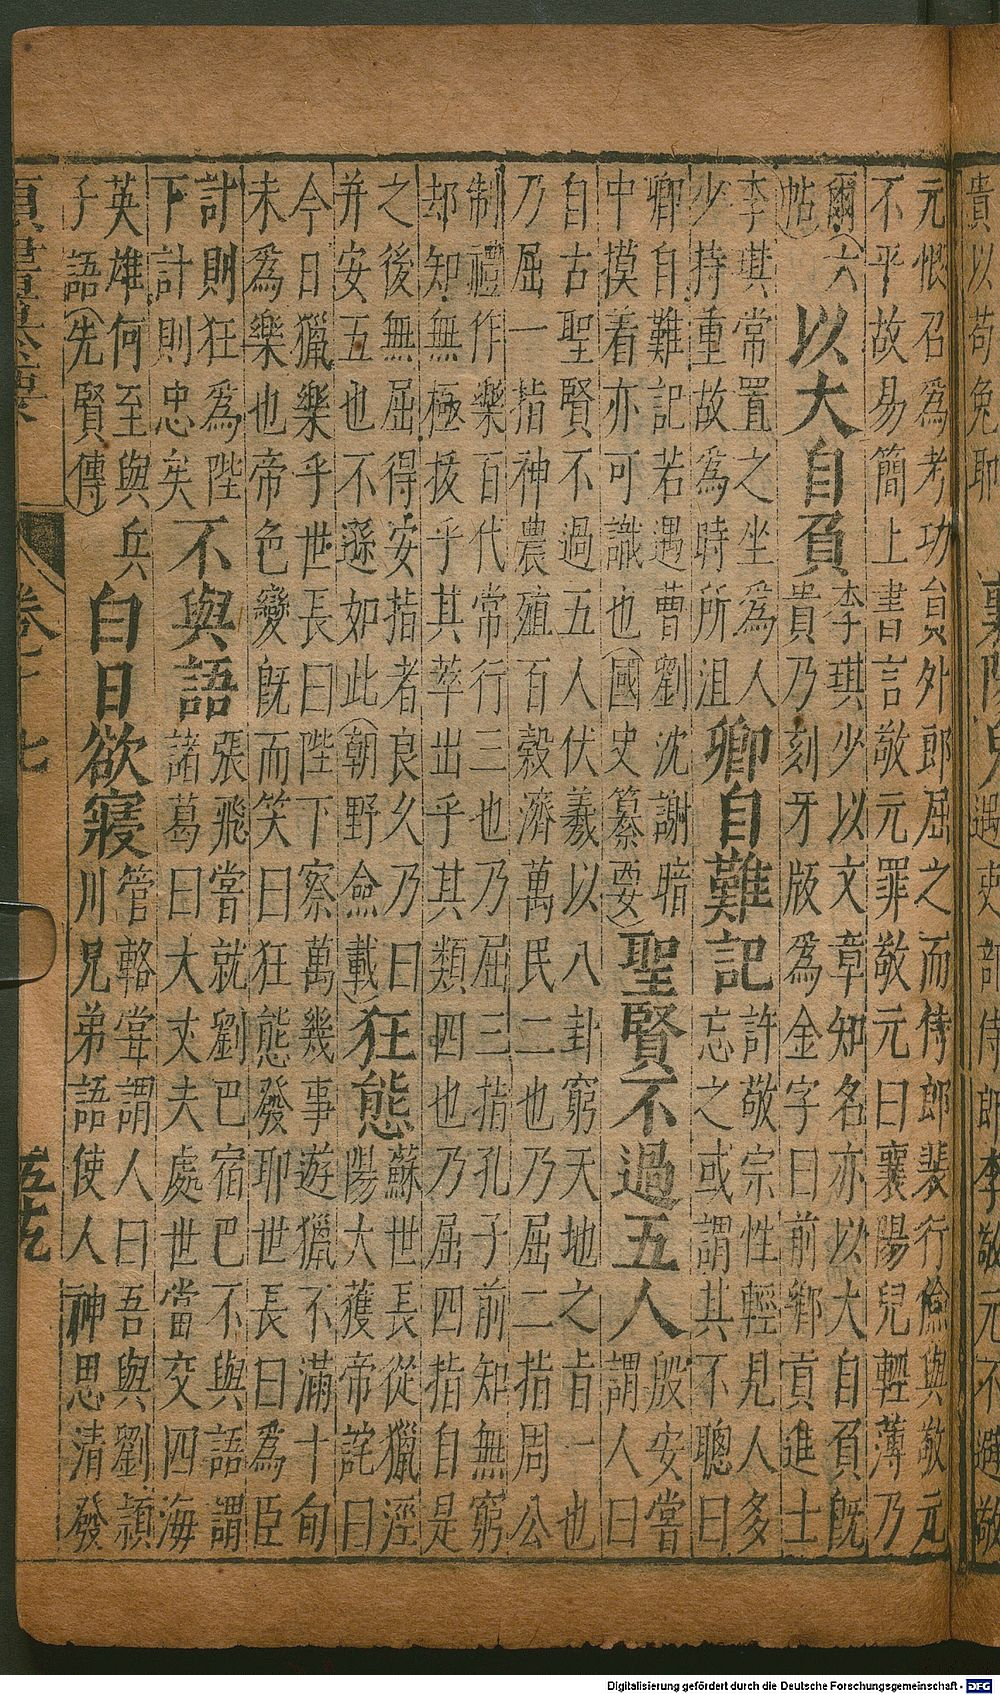 貴以苟免恥
過吏部侍郎李敬元不避敬
元恨召為考功員外郎屈之而待郎裴行儉與敬元
不平故易簡上書言敬元罪敬元曰襄陽兒輕薄乃
爾(六
帖)
以大自負
李琪少以文章知名亦以大自負既
貴乃刻牙版為金字曰前鄉貢進士
李琪常置之坐為人
少持重故為時所沮
卿自難記
許敬宗性輕見人多
忘之或謂其不聰曰
卿自難記若遇曹劉沈謝暗
中摸着亦可識也(國史纂要)
聖賢不過五人
殷安嘗
謂人曰
自古聖賢不過五人伏羲以八卦窮天地之旨一也
乃屈一指神農殖百穀濟萬民二也乃屈二指周公
制禮作樂百代常行三也乃屈三指孔子前知無窮
却知無極拔乎其萃出乎其類四也乃屈四指自是
之後無屈得安指者良久乃曰
并安五也不遜如此(朝野僉載)
狂態
蘇世長從獵涇
陽大獲帝詫曰
今日獵樂乎世長曰陛下察萬幾事遊獵不滿十旬
未為樂也帝色變既而笑曰狂態發耶世長曰為臣
計則狂為陛
下計則忠矣
不與語
張飛嘗就劉巴宿巴不與語謂
諸葛曰大丈夫處世當交四海
英雄何至與兵
子語(先賢傳)
白日欲寢
管輅嘗謂人曰吾與劉潁
川兄弟語使人神思清發
卷七
Digitalisierung gefördert durch die Deutsche Forschungsgemeinschaft - DFG